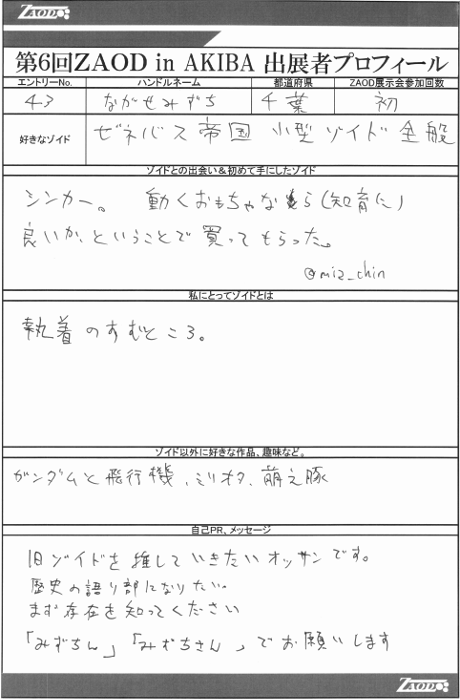 ZAOD
第6回ZAOD in AKIBA 出展者プロフィール
エントリーNo. ハンドルネーム 都道府県 ZAOD展示会参加回数
43 ながせみずち 千葉 初
好きなゾイド ゼネバス帝国 小型ゾイド全般
ゾイドとの出会い＆初めて手にしたゾイド
シンカー。 動くおもちゃなら(知育に)
良いか、ということで買ってもらった。
@miz_chin
私にとってゾイドとは
執着のすむところ。
ゾイド以外に好きな作品、趣味など。
ガンダムと飛行機、ミリオタ、萌え豚
自己PR、メッセージ
旧ゾイドを推していきたいオッサンです。
歴史の語り部になりたい。
まず存在を知ってください
「みずちん」「みずちさん」でお願いします
ZAOD